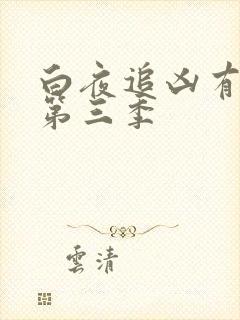 白夜追凶有
第三季
雲清